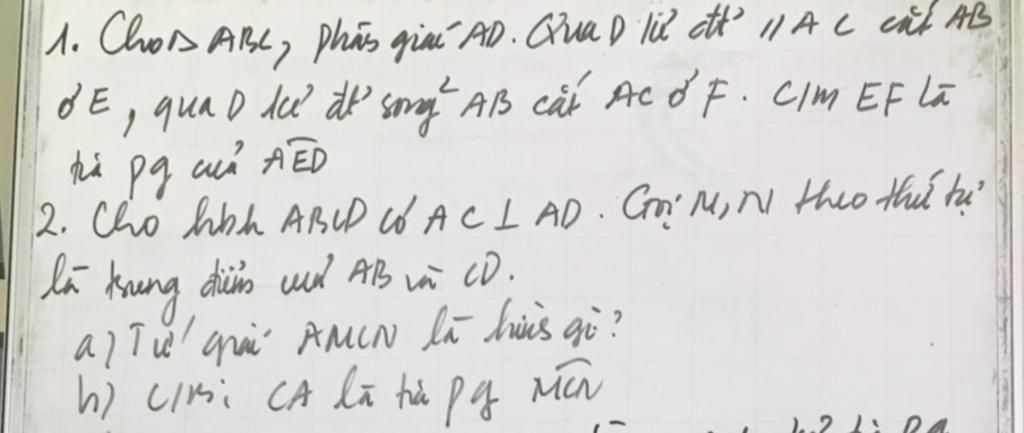 1. Cho Δ ABC, phân giác AD. Qua D kẻ đt // AC cắt AB
ở E, qua D kẻ đt song² AB cắt AC ở F. C/m EF là
tia pg của AED
2. Cho hbh ABCD có AC ⊥ AD. Gọi M, N theo thứ tự
là trung điểm của AB và CD.
a) Tứ giác AMCN là hình gì?
b) C/m: CA là tia pg MCN